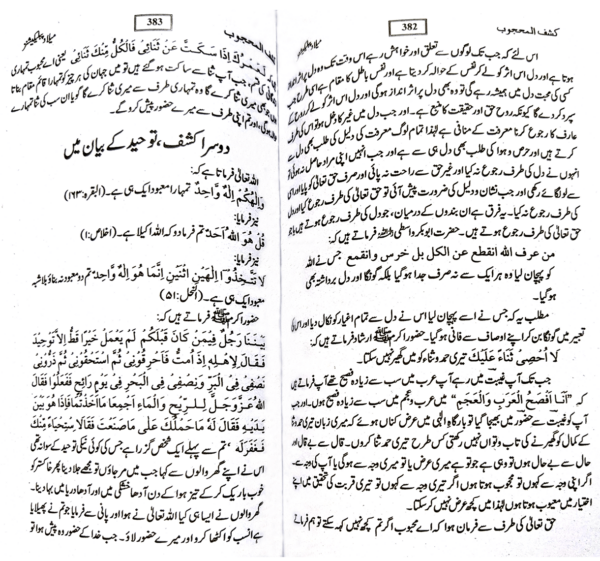 382
کشف المحجوب
میلاد پبلیکیشنز
اس لئے کہ جب تک لوگوں سے تعلق اور خواہش رہے اس وقت تک وہ دل پر اثر انداز
ہوتا ہے اور دل اس اثر کو لے کر نفس کے حوالہ کر دیتا ہے اور نفس باطل کا مقام ہے اسی طرح جب
کسی کی محبت دل میں ہمیشہ رہے گی تو وہ بھی دل پر اثر انداز ہوگی اور دل اس اثر کو لے کر روح کے
سپرد کردے گا کیونکہ روح حق اور حقیقت کا منبع ہے۔ اور جب دل میں غیر کا دخل ہو تو اس کی طرف
عارف کا رجوع کرنا معرفت کے منافی ہے لہٰذا تمام لوگ معرفت کی دلیل کی طلب بھی دل سے
کرتے ہیں اور حرص و ہوا کی طلب بھی دل ہی سے ہے اور جب انہیں اپنی مراد حاصل نہ ہوئی تو
انہوں نے دل کی طرف رجوع نہ کیا اور غیر حق سے راحت نہ پائی اور صرف حق تعالیٰ کو پایا اور اسی
سے لو لگائے رکھی اور جب نشان و دلیل کی ضرورت پیش آئی تو حق تعالیٰ کی طرف رجوع کیا اور دل
کی طرف رجوع نہ کیا۔ یہ فرق ہے ان بندوں کے درمیان، جو دل کی طرف رجوع ہوتے ہیں یا جو
حق تعالیٰ کی طرف رجوع ہوتے ہیں۔ حضرت ابوبکر واسطی فرماتے ہیں کہ:
من عرف الله انقطع عن الكل بل خرس وانقمع جس نے اللہ
کو پہچان لیا وہ ہر ایک سے نہ صرف جدا ہو گیا بلکہ گونگا اور دل برداشتہ بھی
ہو گیا۔
مطلب یہ کہ جس نے اسے پہچان لیا اس نے دل سے تمام اغیار کو نکال دیا اور اس کی
تعبیر میں گونگا بن کر اپنے اوصاف سے فانی ہو گیا۔ حضور اکرم ﷺ ارشاد فرماتے ہیں کہ:
لَا أُحْصِىْ ثَنَاءً عَلَيْكَ تیری حمد و ثنا کو میں گھیر نہیں سکتا۔
جب تک آپ غیبت میں رہے آپ عرب میں سب سے زیادہ فصیح تھے آپ فرماتے
کہ ”اَنَا اَفْصَحُ الْعَرَبِ وَالْعَجَمِ“ میں عرب و عجم میں سب سے زیادہ فصیح ہوں۔ اور جب
آپ کو غیبت سے حضور میں بھیجا گیا تو بارگاہ الٰہی میں عرض کناں ہوئے کہ میری زبان تیری حمد و ثنا
کے کمال کو گھیرنے کی تاب و تواں نہیں رکھتی کس طرح میں تیری حمد و ثنا کروں۔ قال سے بے قال اور
حال سے بے حال ہوں تو وہی ہے جو تو ہے میری عرض یا تو میری وجہ سے ہوگی یا آپ کی وجہ سے۔
اگر اپنی وجہ سے کہوں تو محجوب ہوتا ہوں اور اگر تیری وجہ سے کہوں تو تیری قربت کی تحقیق میں اپنے
اختیار میں معیوب ہوتا ہوں لہٰذا میں کچھ عرض نہیں کرسکتا۔
حق تعالیٰ کی طرف سے فرمان ہوا کہ اے محبوب اگر تم کچھ نہیں کہہ سکتے تو ہم فرماتے
383
کشف المحجوب
میلاد پبلیکیشنز
لَعَمْرُكَ اِذَا سَكَتَّ عَنْ ثَنَائِىْ فَالْكُلُّ مِنْكَ ثَنَائِىْ یعنی اے محبوب تمہاری
زندگی کی قسم، جب آپ ثنا سے ساکت ہو گئے ہیں تو میں جہان کی ہر چیز کو تمہارا قائم مقام بناتا
بھی میری ثنا کرے گا وہ تمہاری طرف سے میری ثنا کرے گا گویا ان سب کی ثنا تمہارے
ہوگی، اور تم اپنی طرف سے میرے حضور پیش کرو گے۔
دوسرا کشف، توحید کے بیان میں
اللہ تعالیٰ فرماتا ہے کہ:
وَاِلٰهُكُمْ اِلٰهٌ وَّاحِدٌ تمہارا معبود ایک ہی ہے۔ (البقرہ: ۱۶۳)
نیز فرمایا:
قُلْ هُوَ اللهُ اَحَدٌ تم فرما دو کہ اللہ اکیلا ہے۔ (اخلاص: ۱)
نیز فرمایا:
لَا تَتَّخِذُوْا اِلٰهَيْنِ اثْنَيْنِ اِنَّمَا هُوَ اِلٰهٌ وَّاحِدٌ تم دو معبود نہ بناؤ بلاشبہ
معبود ایک ہی ہے۔ (النحل: ۵۱)
حضور اکرم ﷺ فرماتے ہیں کہ:
بَيْنَنَا رَجُلٌ فِيْمَنْ كَانَ قَبْلَكُمْ لَمْ يَعْمَلْ خَيْرًا قَطُّ اِلَّا تَوْحِيْدَ
فَقَالَ لِاَهْلِهٖ اِذْ اُمِتُّ فَاَحْرِقُوْنِىْ ثُمَّ اسْتَحْقُوْنِىْ ثُمَّ ذَرُوْنِىْ
نِصْفِىْ فِى الْبَرِّ وَنِصْفِىْ فِى الْبَحْرِ فِىْ يَوْمٍ رَائِحٍ فَفَعَلُوْا فَقَالَ
اللهُ عَزَّ وَجَلَّ لِلرِّيْحِ وَالْمَاءِ اَجْمِعَا مَا اَخَذْتُمَا فَاِذَا هُوَ بَيْنَ
يَدَيْهِ فَقَالَ لَهٗ مَا حَمَلَكَ عَلٰى مَا صَنَعْتَ فَقَالَ اسْتِحْيَاءً مِنْكَ
فَغَفَرَ لَهٗ تم سے پہلے ایک شخص گزرا ہے جس کی کوئی نیکی توحید کے سوا نہ تھی
اس نے اپنے گھر والوں سے کہا جب میں مرجاؤں تو مجھے جلا دینا پھر خاکستر کو
خوب باریک کر کے تیز ہوا کے دن آدھا خشکی میں اور آدھا دریا میں بہا دینا۔
گھر والوں نے ایسا ہی کیا اللہ تعالیٰ نے ہوا اور پانی سے فرمایا جو تم نے پھیلایا
ہے اسے اکٹھا کرو اور میرے حضور لاؤ۔ جب خدا کے حضور وہ پیش ہوا تو